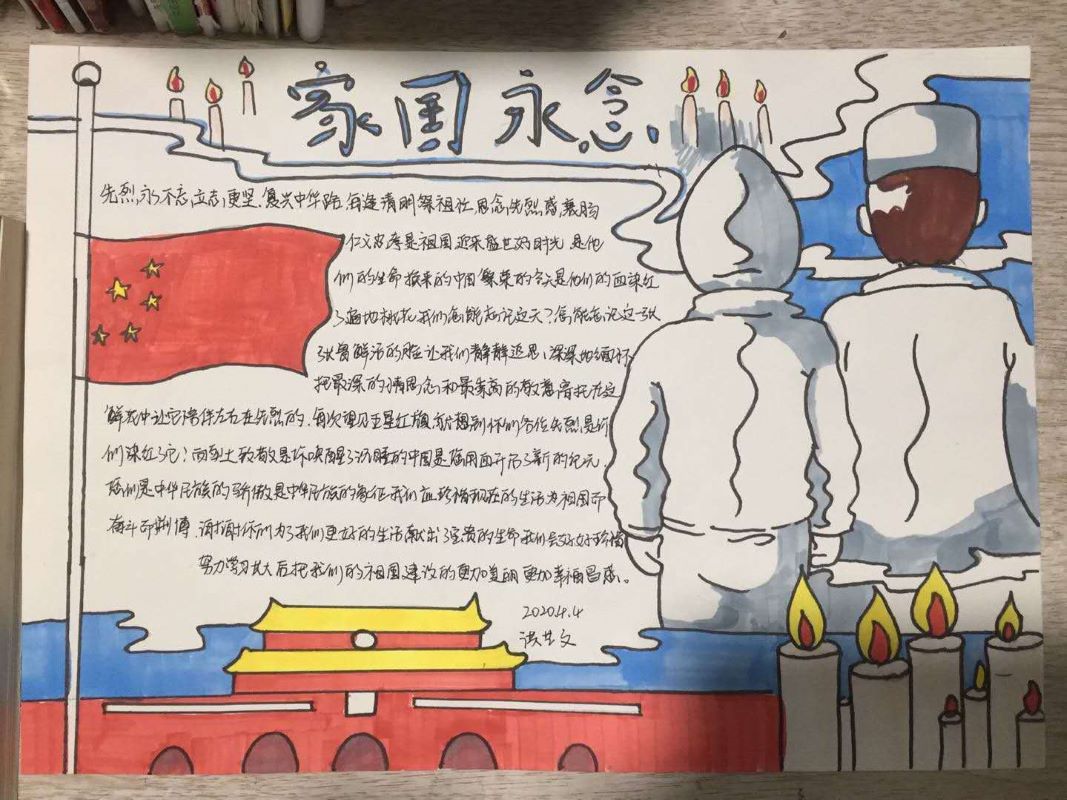 家国永念
先烈永不忘,立志更坚.复兴中华路 每逢清明祭祖任 思念先烈感衷肠
仁义忠孝是祖国 迎来盛世好时光 是他
们的生命换来的中国 繁荣的今天是他们的血染红
了遍地桃花 我们怎能忘记这天?怎能忘记这一张
张曾鲜活的脸 让我们静静追思,深深地缅怀
把最深的情思念和最崇高的敬意寄托在这
鲜花中让它陪伴左右在先烈的.每次望见五星红旗,就想到你们各位先烈是你
们染红了它!向勇士致敬是你唤醒了沉睡的中国是您用血开启了新的纪元.
您们是中华民族的骄傲是中华民族的象征 我们应珍惜现在的生活为祖国而
奋斗而拼搏 谢谢你们为了我们更好的生活献出了宝贵的生命我们会好好珍惜
努力学习长大后把我们的祖国建设的更加美丽更加幸福昌盛。
2020.4.4